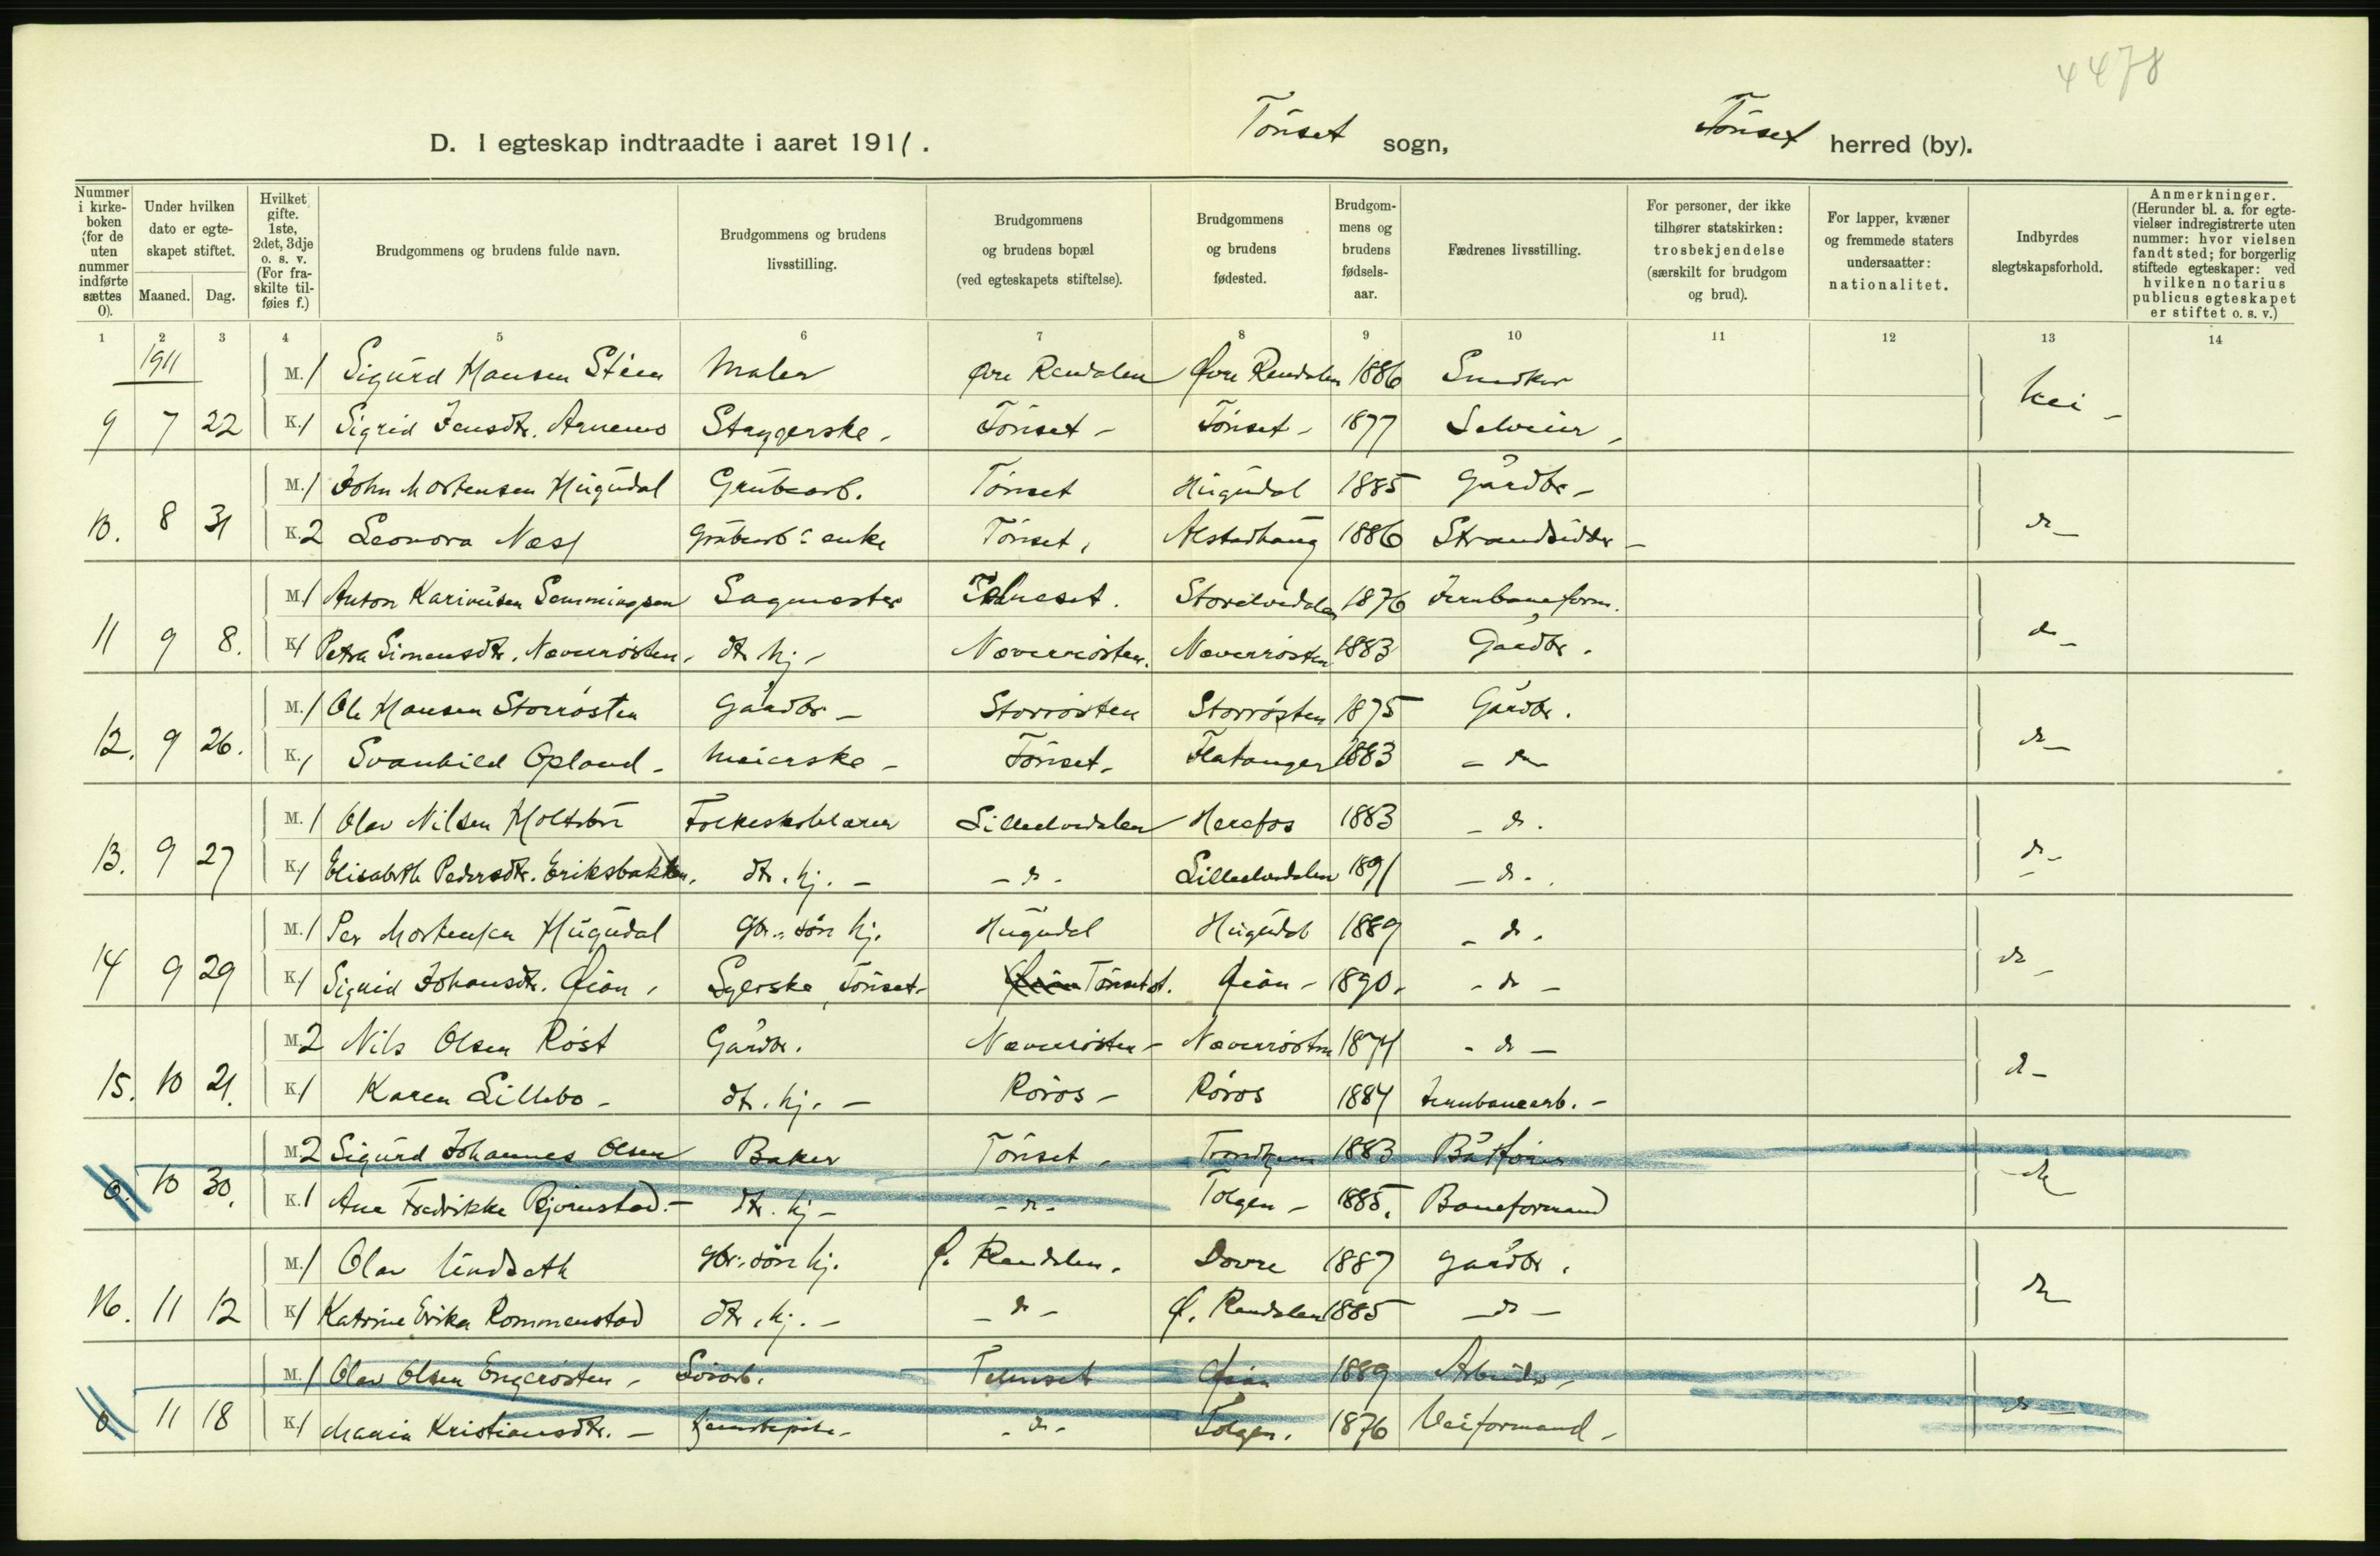 4478
D. I egteskap indtraadte i aaret 1911. Tönset sogn, Tönset herred (by).
Nummer i kirkeboken (for de uten nummer indførte sættes 0).
Under hvilken dato er egteskapet stiftet.
Maaned. Dag.
Hvilket gifte. 1ste, 2det, 3dje o. s. v. (For fraskilte tilføies f.)
Brudgommens og brudens fulde navn.
Brudgommens og brudens livsstilling.
Brudgommens og brudens bopæl (ved egteskapets stiftelse).
Brudgommens og brudens fødested.
Brudgommens og brudens fødselsaar.
Fædrenes livsstilling.
For personer, der ikke tilhører statskirken: trosbekjendelse (særskilt for brudgom og brud).
For lapper, kvæner og fremmede staters undersaatter: nationalitet.
Indbyrdes slegtskapsforhold.
Anmerkninger. (Herunder bl. a. for egtevielser indregistrerte uten nummer: hvor vielsen fandt sted; for borgerlig stiftede egteskaper: ved hvilken notarius publicus egteskapet er stiftet o. s. v.)
1 2 3 4 5 6 7 8 9 10 11 12 13 14
1911
M. 1 Sigurd Hansen Stéen Maler Øvre Rendalen Øvre Rendalen 1886 Snedker
9 7 22 K. 1 Sigrid Jensdtr. Arnemo Stenggerske - Tönset - Tönset - 1877 Selveier - Nei -
M. 1 John Mortensen Hugudal Grubearb. Tönset Hugudal 1885 Gårdbr -
10. 8 31 K. 2 Leonora Næss Grubearb.s enke Tönset, Alstadhaug 1886 Strandsidder - do -
M. 1 Anton Kariniusen Semmingsen Sagmester Telneset. Storelvedalen 1876 Jernbaneform.
11 9 8. K. 1 Petra Simensdtr. Næverrösten - dtr. hj - Næverrösten. Næverrösten 1883 Gårdbr. do -
M. 1 Ole Hansen Storrösten Gårdbr - Storrösten Storrösten 1875 Gårdbr.
12. 9 26. K. 1 Svanhild Opland - Meierske - Tönset - Flatanger 1883 - do - do -
M. 1 Olav Nilsen Holtsbru Folkeskolelærer Lilleelvedalen Herefos 1883 - do.
13. 9 27 K. 1 Elisabeth Pedersdtr. Eriksbakken. dtr. hj. - - do - Lilleelvedalen 1891 - do - do -
M. 1 Per Mortensen Hugudal Gbr. sön hj. Hugudal Hugudal 1889 - do.
14 9 29 K. 1 Sigrid Johansdtr. Øian, Syerske, Tönset - Øian Tönset st. Øian - 1890. - do - do -
M. 2 Nils Olsen Röst Gårdbr. Næverrösten - Næverrösten 1874 - do -
15. 10 21. K. 1 Karen Lillebo - dtr. hj. - Röros - Röros 1884 Jernbanearb. - do -
M. 2 Sigurd Johannes Olsen Baker Tönset - Trondhjem 1883 Båtförer
0. 10 30. K. 1 Ane Fredrikke Bjørnstad. - dtr. hj - - do - Tolgen - 1885. Baneformand - do
M. 1 Olav Lindsæth Gbr. sön hj. Ø. Rendalen. Dovre 1887 Gårdbr.
16. 11 12 K. 1 Katrine Erika Rommenstad dtr. hj. - - do - Ø. Rendalen 1885 - do - do
M. 1 Olav Olsen Engerösten - Telneset Øian 1889 Arbeider -
0 11 18 K. 1 Maria Kristiansdtr. - - do - Tolgen. 1876 Veiformand - do -